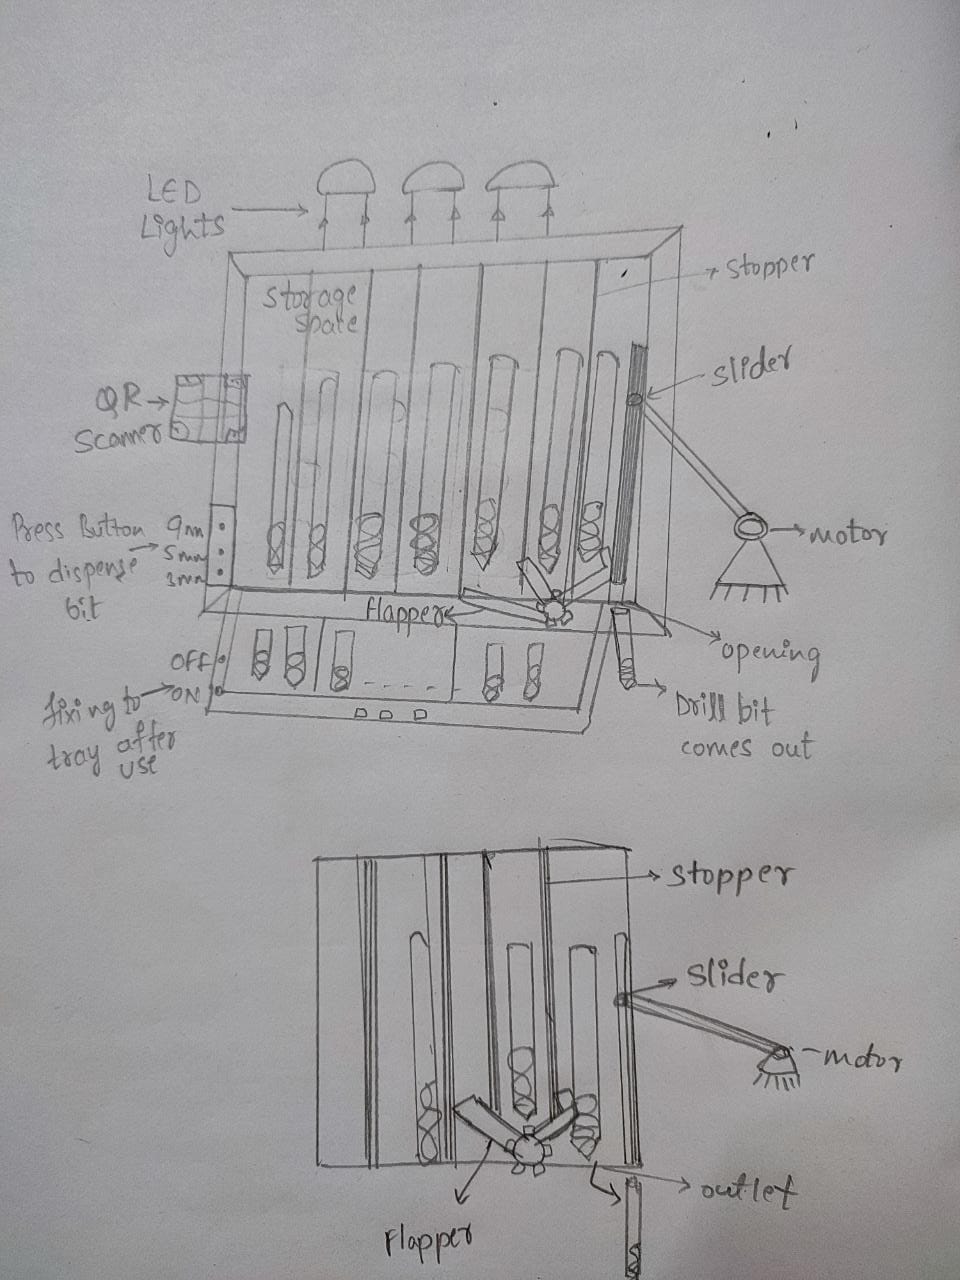 LED
Lights
Stopper
Storage
spate
slider
QR
Scanner
Press Button
to dispense
bit
9mm
5mm
3mm
motor
flapper
opening
OFF
ON
fixing to
tray after
use
Drill bit
comes out
Stopper
Slider
motor
outlet
Flapper